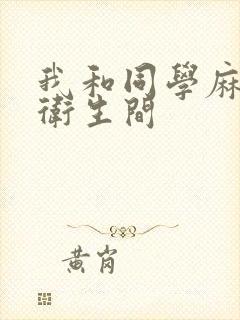 我和同學麻
衛生間
黄岗